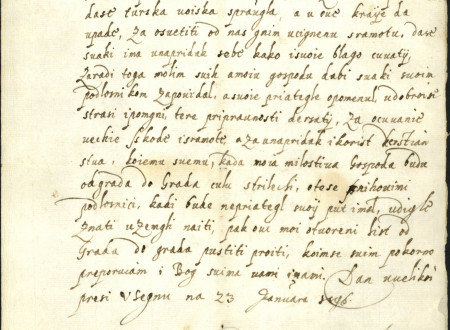 dase turska voiska spraugla, a u oue kraye da
upade, Za osuetiti od nas gnim ucignenu sramotu, dase
suaki ima unapridak sebe kako isuoie blago cuuaty,
Zaradi toga molim suih amoiu gospodu dabi suaki suoim
podlosnikom Zapouidal, asuoie priategle opomenul, udobroise
strasi ipomgni, tere pripraunosti dersaty, Za ocuuanie
uechie sskode isramote aZaunapridak ikorist kerstian
stua, koiemu suemu, kada moia milostiua Gospoda budu
odgrada do Grada culu strilechi, otose gnihouimi
podlosnici, kadi bude nepriategl suoy put imal, udigli
Znati uZemgli naiti, pak oue moi otuoreni list od
Grada do grada pustiti proiti, koimse suim pokorno
preporucam i Bog suima uami ynami. Dan
presi USegnu na 23 Januara